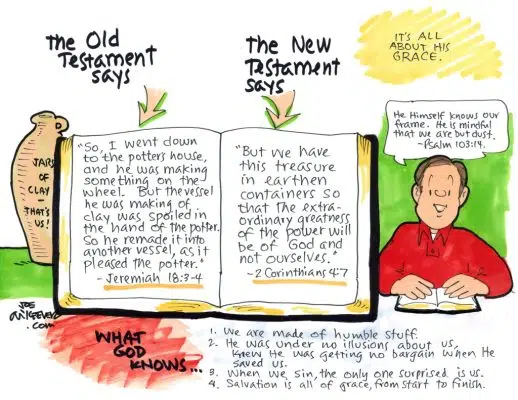 The Old
Testament
says
The New
Testament
says
IT'S ALL
ABOUT HIS
GRACE.
JARS
OF
CLAY
—
THAT'S
US!
"So, I went down
to the potter's house,
and he was making
something on the
wheel. But the vessel
he was making of
clay was spoiled in
the hand of the potter.
So he remade it into
another vessel, as it
pleased the potter."
-Jeremiah 18:3-4
"But we have
this treasure
in earthen
containers so
that the extra-
ordinary greatness
of the power will
be of God and
not ourselves."
-2 Corinthians 4:7
He Himself knows our
frame. He is mindful
that we are but dust.
-Psalm 103:14.
JOE
McKEEVER
.COM
WHAT
GOD
KNOWS...
1. We are made of humble stuff.
2. He was under no illusions about us,
knew He was getting no bargain when He
saved us.
3. When we sin, the only one surprised is us.
4. Salvation is all of grace, from start to finish.